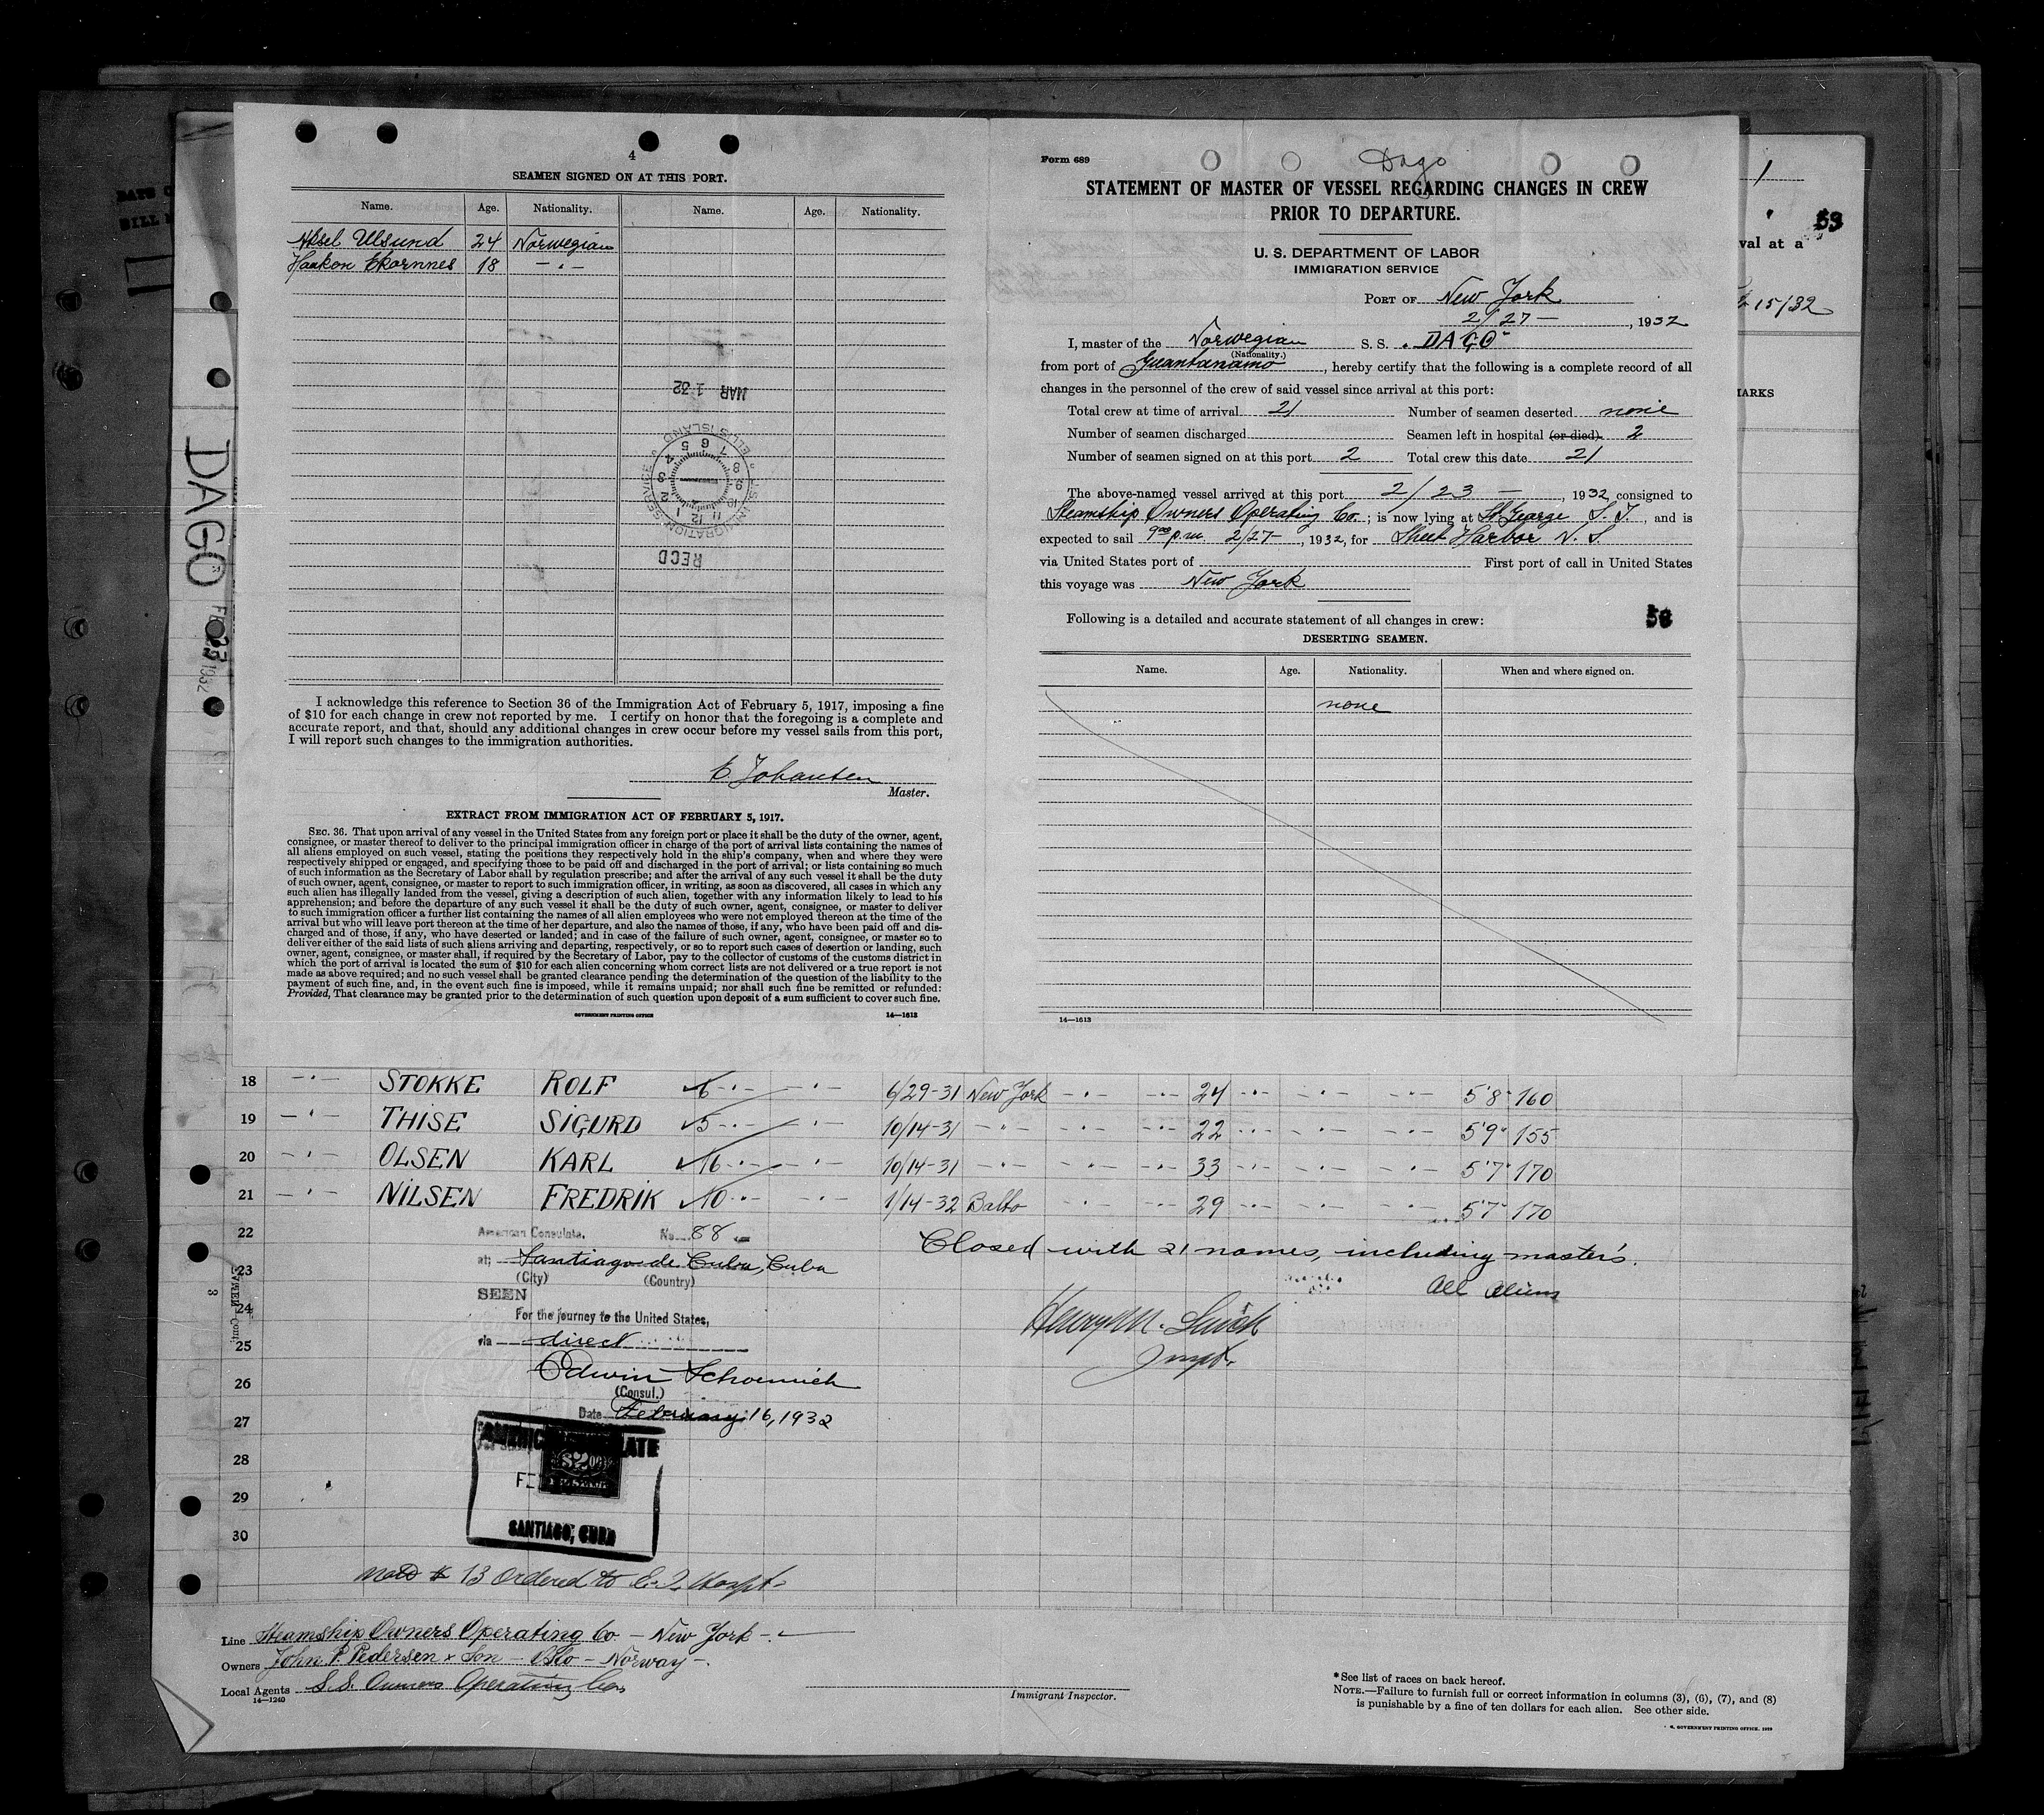 4
SEAMEN SIGNED ON AT THIS PORT.
Name. Age. Nationality. Name. Age. Nationality.
Aksel Ulsund 24 Norwegian
Haakon Ekornnes 18 - " -
MAR 1 32
U.S. IMMIGRATION SERVICE
ELLIS ISLAND
RECD
I acknowledge this reference to Section 36 of the Immigration Act of February 5, 1917, imposing a fine
of $10 for each change in crew not reported by me. I certify on honor that the foregoing is a complete and
accurate report, and that, should any additional changes in crew occur before my vessel sails from this port,
I will report such changes to the immigration authorities.
E. Johansen
Master.
EXTRACT FROM IMMIGRATION ACT OF FEBRUARY 5, 1917.
SEC. 36. That upon arrival of any vessel in the United States from any foreign port or place it shall be the duty of the owner, agent,
consignee, or master thereof to deliver to the principal immigration officer in charge of the port of arrival lists containing the names of
all aliens employed on such vessel, stating the positions they respectively hold in the ship's company, when and where they were
respectively shipped or engaged, and specifying those to be paid off and discharged in the port of arrival; or lists containing so much
of such information as the Secretary of Labor shall by regulation prescribe; and after the arrival of any such vessel it shall be the duty
of such owner, agent, consignee, or master to report to such immigration officer, in writing, as soon as discovered, all cases in which any
such alien has illegally landed from the vessel, giving a description of such alien, together with any information likely to lead to his
apprehension; and before the departure of any such vessel it shall be the duty of such owner, agent, consignee, or master to deliver
to such immigration officer a further list containing the names of all alien employees who were not employed thereon at the time of the
arrival but who will leave port thereon at the time of her departure, and also the names of those, if any, who have been paid off and dis-
charged and of those, if any, who have deserted or landed; and in case of the failure of such owner, agent, consignee, or master so to
deliver either of the said lists of such aliens arriving and departing, respectively, or so to report such cases of desertion or landing, such
owner, agent, consignee, or master shall, if required by the Secretary of Labor, pay to the collector of customs of the customs district in
which the port of arrival is located the sum of $10 for each alien concerning whom correct lists are not delivered or a true report is not
made as above required; and no such vessel shall be granted clearance pending the determination of the question of the liability to the
payment of such fine, and, in the event such fine is imposed, while it remains unpaid; nor shall such fine be remitted or refunded:
Provided, That clearance may be granted prior to the determination of such question upon deposit of a sum sufficient to cover such fine.
GOVERNMENT PRINTING OFFICE 14—1613
Form 689
Dago
STATEMENT OF MASTER OF VESSEL REGARDING CHANGES IN CREW
PRIOR TO DEPARTURE.
U. S. DEPARTMENT OF LABOR
IMMIGRATION SERVICE
PORT OF New York
2/27 - , 1932
I, master of the Norwegian S. S. "DAGO"
(Nationality.)
from port of Guantanamo, hereby certify that the following is a complete record of all
changes in the personnel of the crew of said vessel since arrival at this port:
Total crew at time of arrival 21 Number of seamen deserted none
Number of seamen discharged Seamen left in hospital (or died) 2
Number of seamen signed on at this port 2 Total crew this date 21
The above-named vessel arrived at this port 2/23 - , 1932 consigned to
Steamship Owners Operating Co.; is now lying at St. George S. I., and is
expected to sail 9 p.m. 2/27 - , 1932, for Sheet Harbor N. S.
via United States port of First port of call in United States
this voyage was New York
Following is a detailed and accurate statement of all changes in crew:
DESERTING SEAMEN.
Name. Age. Nationality. When and where signed on.
none
14—1613
1
53
val at a
15/32
MARKS
DAGO
FEB 23 1932
18 - " - STOKKE ROLF 6 - " - - " - 6/29-31 New York - " - - " - 24 - " - - " - - " - 5'8" 160
19 - " - THISE SIGURD 5 - " - - " - 10/14-31 - " - - " - - " - 22 - " - - " - - " - 5'9" 155
20 - " - OLSEN KARL 16 - " - - " - 10/14-31 - " - - " - - " - 33 - " - - " - - " - 5'7" 170
21 - " - NILSEN FREDRIK 10 - " - - " - 1/14-32 Balto - " - - " - 29 - " - - " - - " - 5'7" 170
22
23
24
25
26
27
28
29
30
American Consulate, No. 88
at: Santiago de Cuba, Cuba
(City) (Country)
SEEN
For the journey to the United States,
via direct
Edwin Schoenrich
(Consul.)
Date February 16, 1932
AMERICAN CONSULATE
$2.00
SANTIAGO, CUBA
Closed with 21 names, including master's.
All aliens
Henry M.
Inspt.
13 ordered to E. I. Hospt.
Line Steamship Owners Operating Co - New York -
Owners John P. Pedersen & Son - Oslo - Norway -
Local Agents S.S. Owners Operating Co.
14—1240
Immigrant Inspector.
*See list of races on back hereof.
NOTE.—Failure to furnish full or correct information in columns (3), (6), (7), and (8)
is punishable by a fine of ten dollars for each alien. See other side.
U. S. GOVERNMENT PRINTING OFFICE: 1929